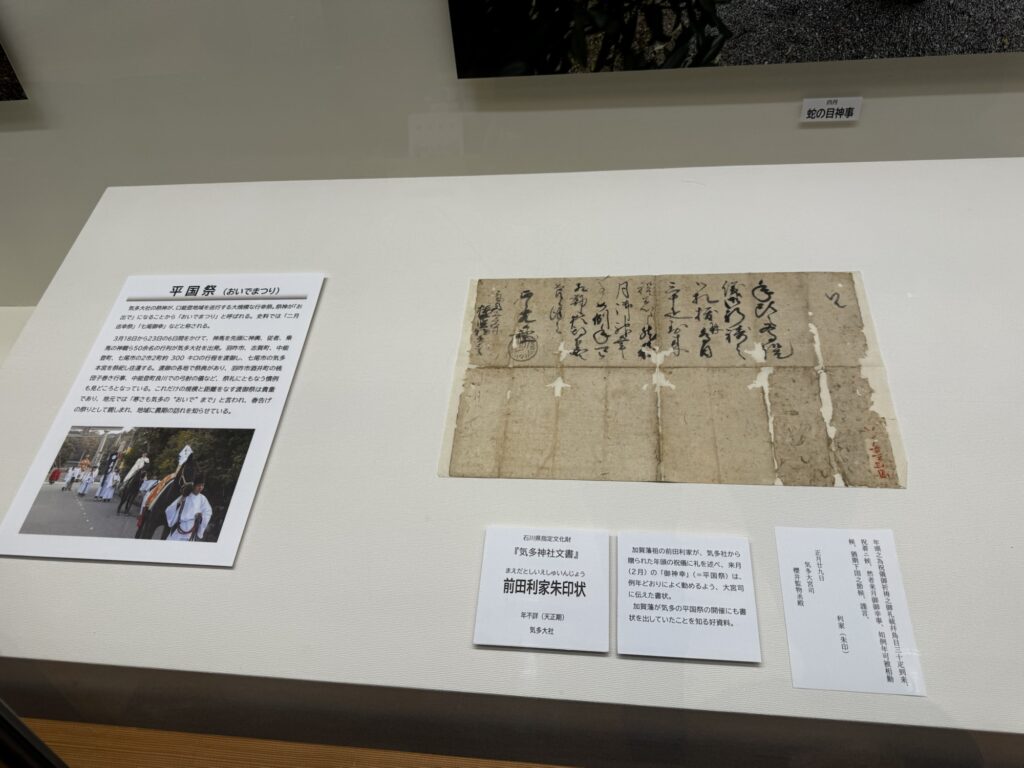 四月
蛇の目神事
平国祭（おいでまつり）
気多大社の祭神が、口能登地域を巡行する大規模な行幸祭。祭神が「お
出で」になることから「おいでまつり」と呼ばれる。史料では「二月
送幸祭」「七尾御幸」などと称される。
3月18日から23日の6日間をかけて、神馬を先頭に神輿、従者、乗
馬の神職ら50余名の行列が気多大社を出発。羽咋市、志賀町、中能
登町、七尾市の2市2町約 300 キロの行程を渡御し、七尾市の気多
本宮を祭祀し往還する。渡御の各地で祭典があり、羽咋市酒井町の桃
団子巻き行事、中能登町良川での弓射の儀など、祭礼にともなう慣例
も見どころとなっている。これだけの規模と距離をなす渡御祭は貴重
であり、地元では「寒さも気多の“おいで”まで」と言われ、春告げ
の祭りとして親しまれ、地域に農期の訪れを知らせている。
石川県指定文化財
『気多神社文書』
まえだとしいえしゅいんじょう
前田利家朱印状
年不詳（天正期）
気多大社
加賀藩祖の前田利家が、気多社から
贈られた年頭の祝儀に礼を述べ、来月
（2月）の「御神幸」（＝平国祭）は、
例年どおりによく勤めるよう、大宮司
に伝えた書状。
加賀藩が気多の平国祭の開催にも書
状を出していたことを知る好資料。
年頭之為祝儀御祈祷之御札並拝鳥目三十疋到来、
祝着ニ候、然者来月御御幸事、如例年可被相勤
候、猶期下国之節候、謹言、
正月廿九日
利家（朱印）
気多大宮司
櫻井監物丞殿